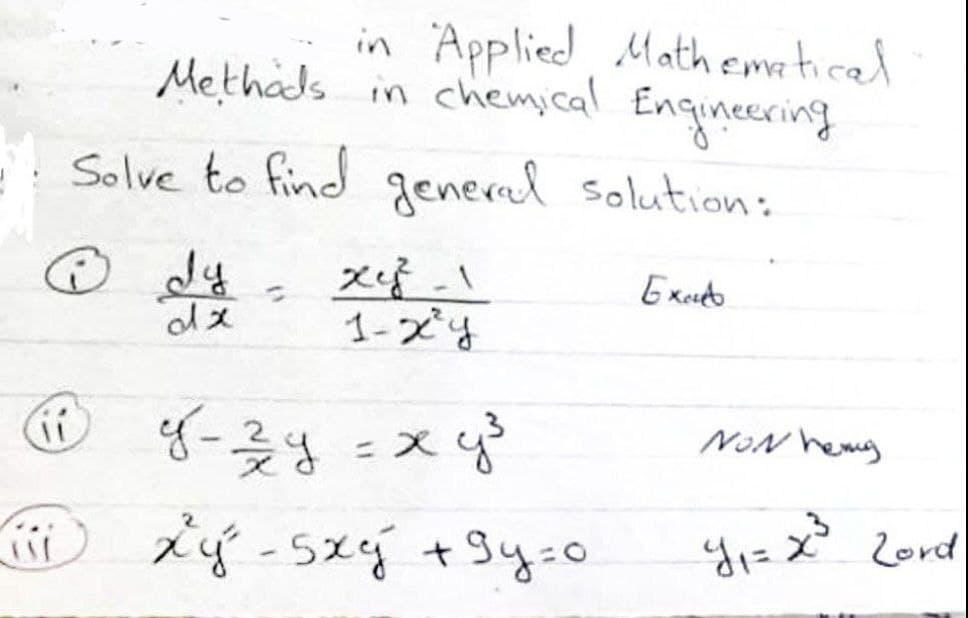 in Applied Mathematical
Methods in chemical Engineering
Solve to find general solution:
(i) dy/dx = (xy² - 1)/(1 - x²y) Exact
(ii) y' - 2/x y = x y³ NON homg
(iii) x²y'' - 5xy' + 9y = 0 y₁ = x³ 2ord